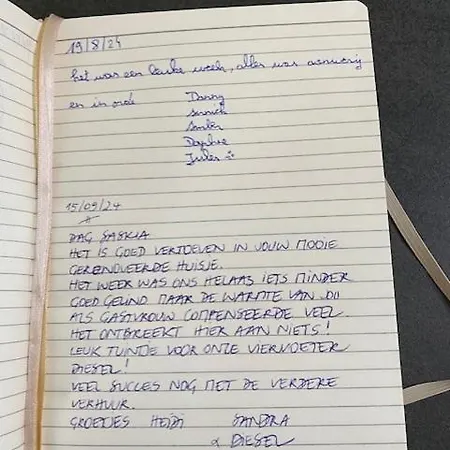 19/8/24
het was een leuke week, alles was aanwezig
en in orde Danny
Sander
Daphne
Jules :)
15/09/24
DAG SASKIA
HET IS GOED VERTOEVEN IN JOUW MOOIE
GERENOVEERDE HUISJE.
HET WEER WAS ONS HELAAS IETS MINDER
GOED GEZIND MAAR DE WARMTE VAN JOU
ALS GASTVROUW COMPENSEERDE VEEL.
HET ONTBREEKT HIER AAN NIETS!
LEUK TUINTJE VOOR ONZE VIERVOETER
DIESEL!
VEEL SUCCES NOG MET DE VERDERE
VERHUUR.
GROETJES HEIDI SANDRA
& DIESEL